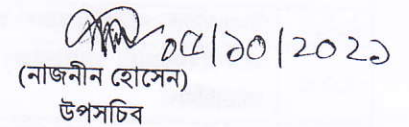 ০৫/১০/২০২১
(নাজনীন হোসেন)
উপসচিব